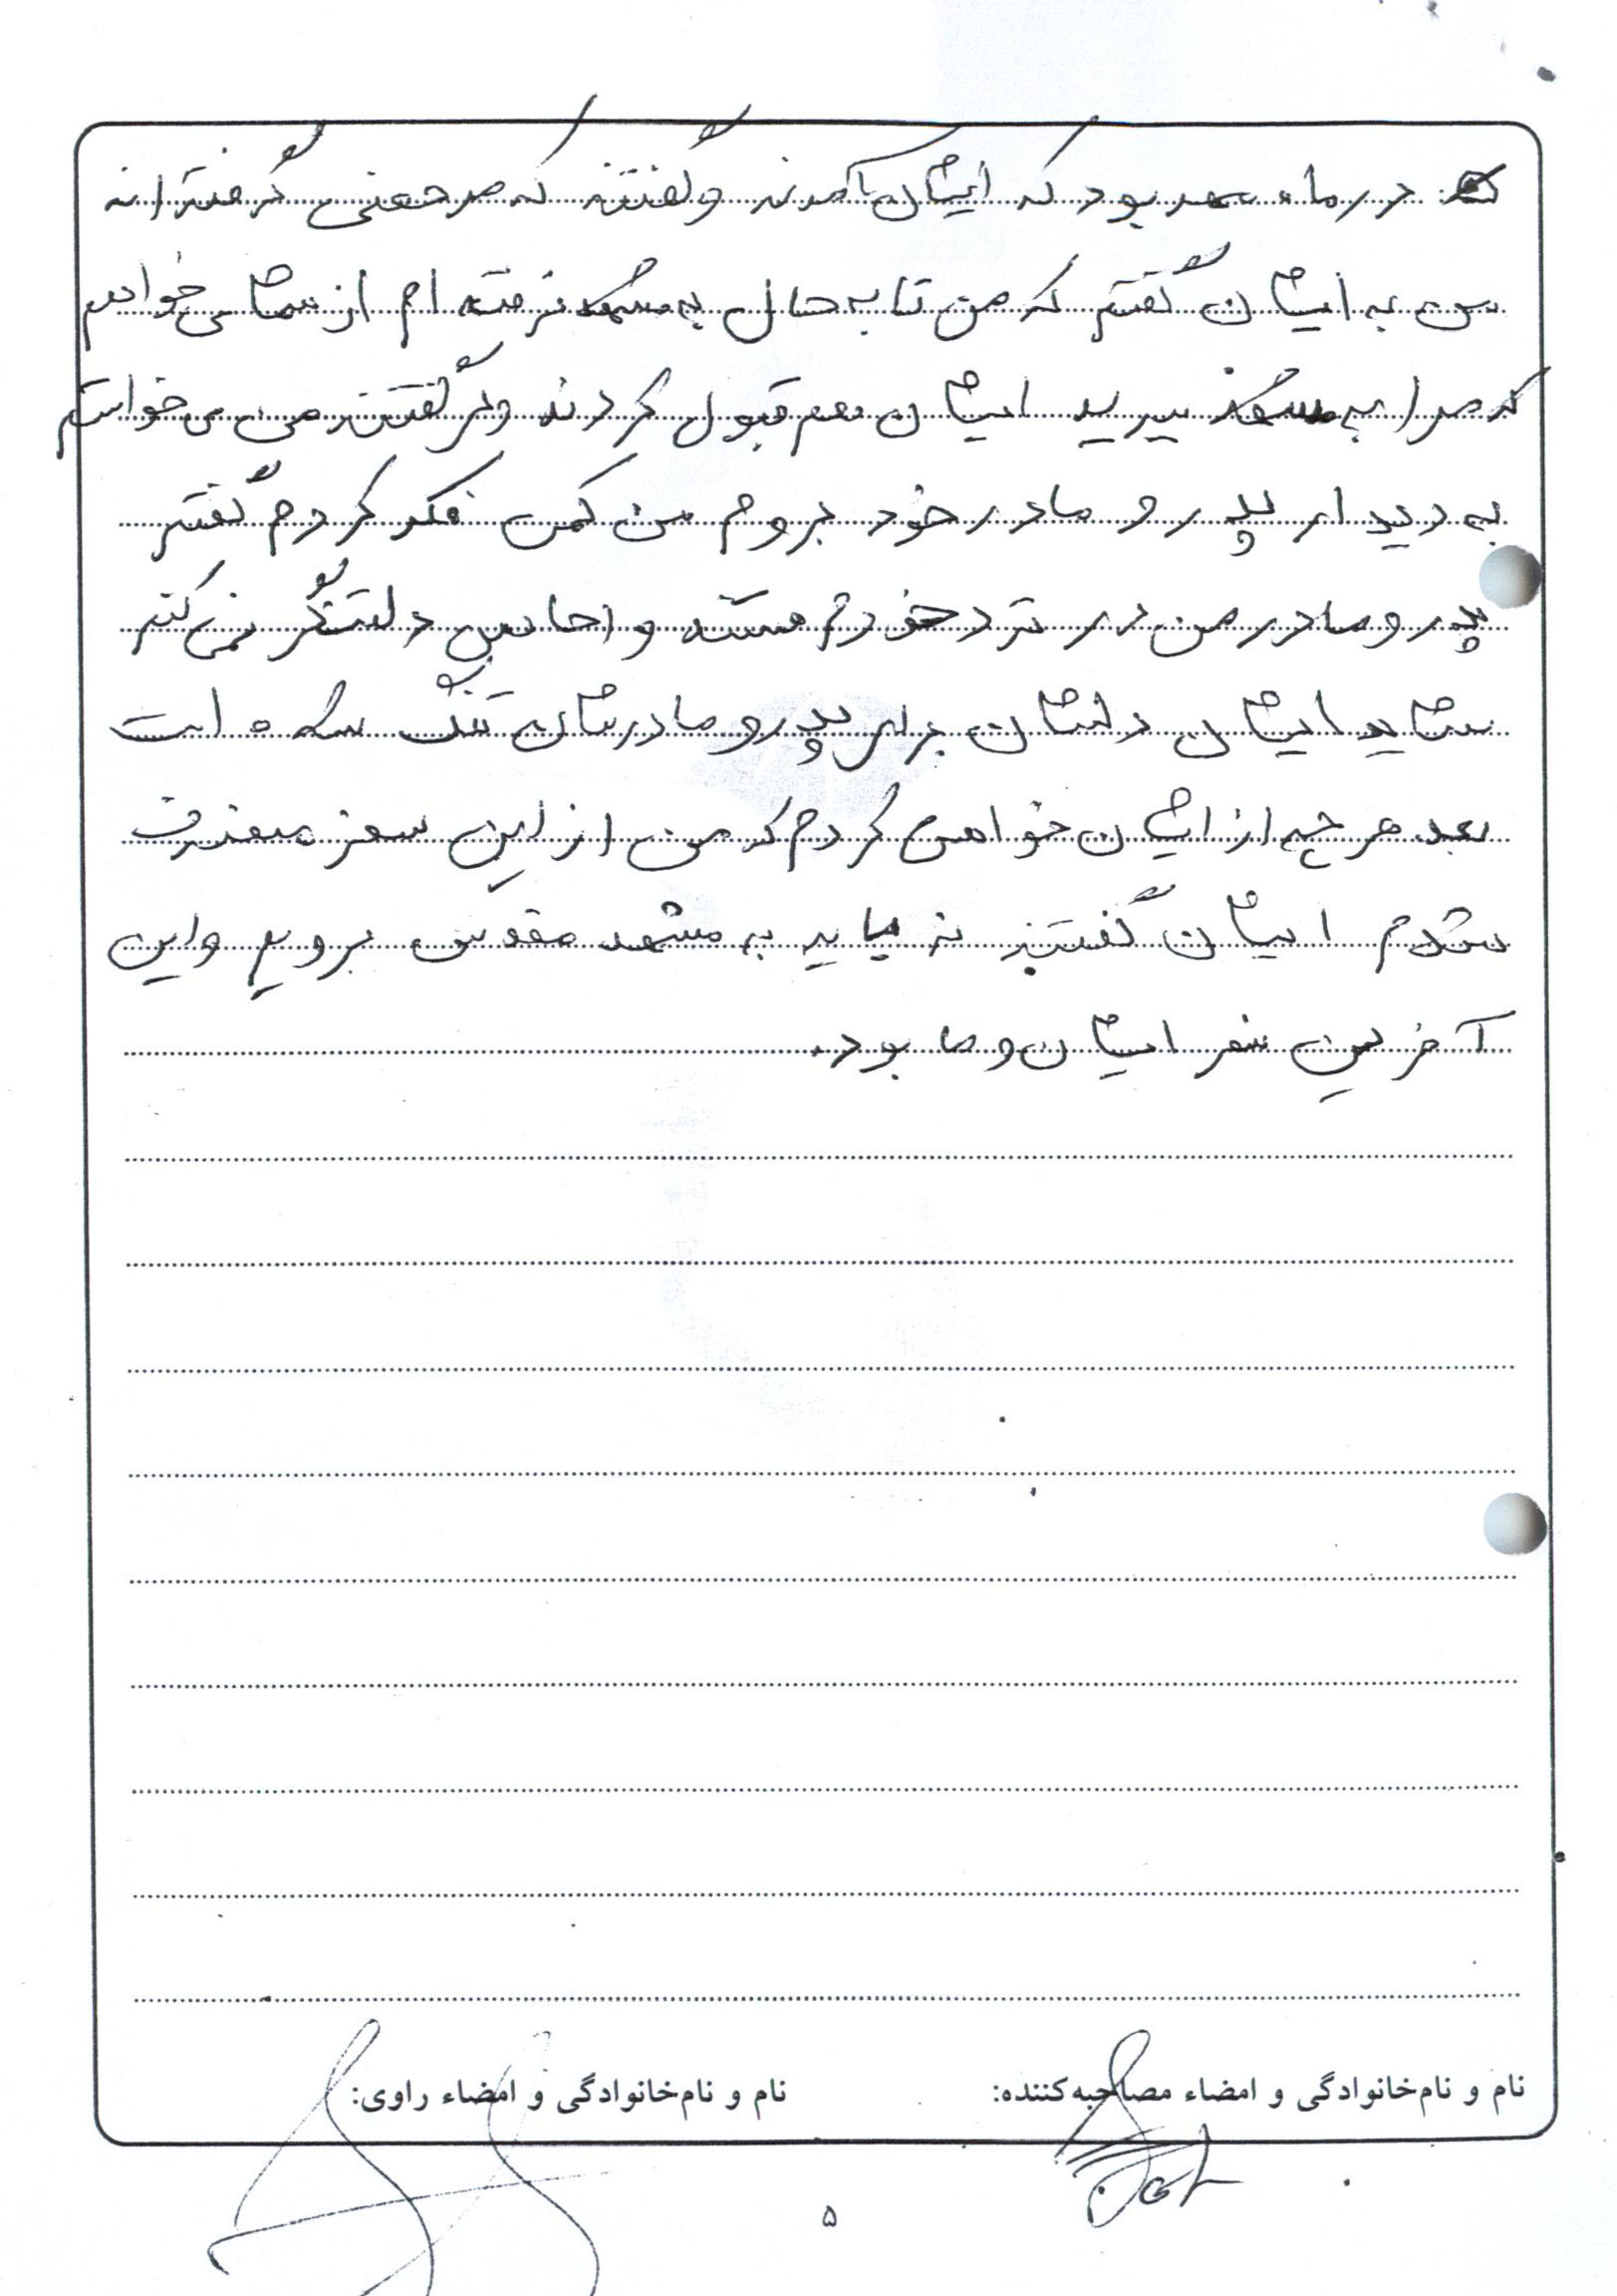 در ماه مهر بود که ایشان آمدند و گفتند که مرخصی گرفته اند
من به ایشان گفتم که من تا به حال به مشهد نرفته ام از شما می خواهم
که مرا به مشهد ببرید ایشان هم قبول کردند ولی گفتند من می خواستم
به دیدار پدر و مادر خود بروم من کمی فکر کردم گفتم
پدر و مادر من در نزد خودم هسته و احساس دلتنگی نمی کنم
شاید ایشان دلشان برای پدر و مادرشان تنگ شده است
بعد هر چه از ایشان خواهش کردم که من از این سفر منصرف
شدم ایشان گفتند نه باید به مشهد مقدس برویم و این
آخرین سفر ایشان و ما بود.
نام و نام‌خانوادگی و امضاء مصاحبه‌کننده: نام و نام‌خانوادگی و امضاء راوی:
۵